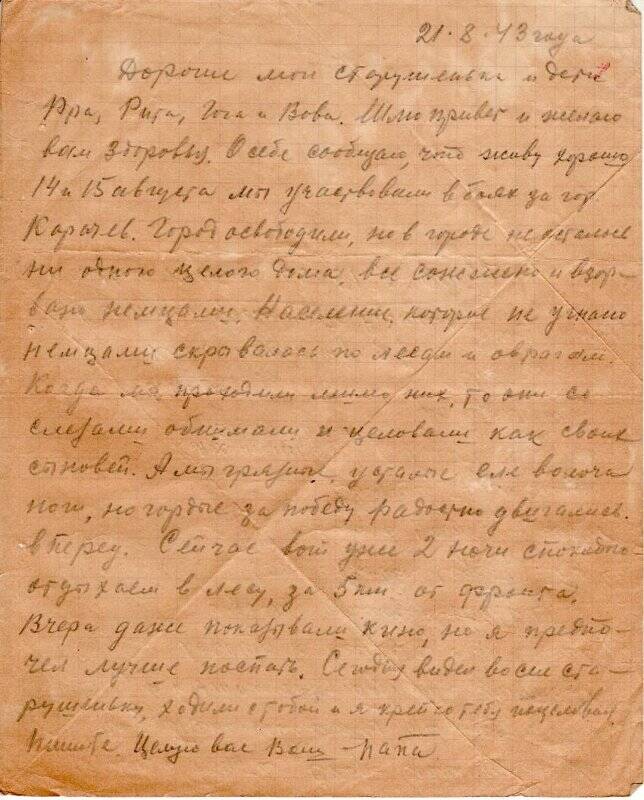 21.8.43 года
Дорогие мои старушенька и дети
Ира, Рита, Гога и Вова. Шлю привет и желаю
вам здоровья. О себе сообщаю, что живу хорошо,
14 и 15 августа мы участвовали в боях за гор.
Карачев. Город освободили, но в городе не осталось
ни одного целого дома, все сожжено и взор-
вано немцами. Население, которое не угнано
немцами скрывалось по лесам и оврагам.
Когда мы проходили мимо них, то они со
слезами обнимали и целовали как своих
сыновей. А мы грязные, усталые еле волоча
ноги, но гордые за победу радостно двигались
вперед. Сейчас вот уже 2 ночи спокойно
отдыхаем в лесу, за 5 км от фронта.
Вчера даже показывали кино, но я предпо-
чел лучше поспать. Сегодня видел во сне ста-
рушеньку, ходили с тобой и я крепко тебя поцеловал.
Пишите. Целую вас Ваш – папа